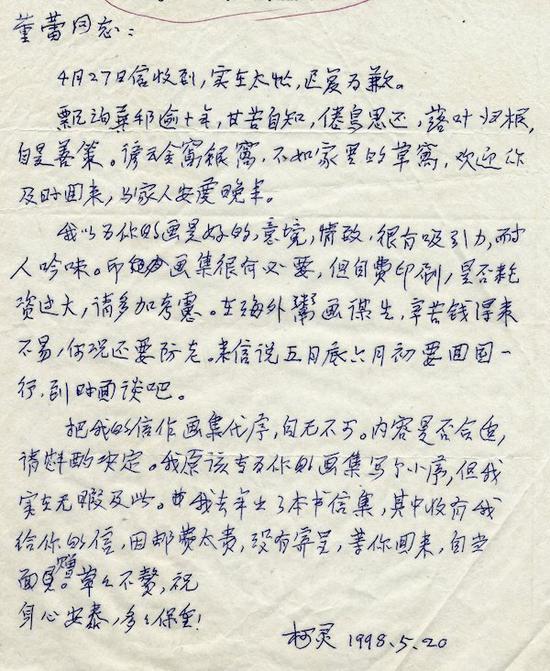 董蕾同志：
4月27日信收到，实在太忙，迟复为歉。
飘泊异邦逾十年，甘苦自知，倦鸟思还，落叶归根，
自是善策。谚云金窝银窝，不如家里的草窝，欢迎你
及时回来，与家人安度晚年。
我以为你的画是好的，意境，情致，很有吸引力，耐
人吟味。印画集很有必要，但自费印刷，是否耗
资过大，请多加考虑。在海外鬻画谋生，辛苦钱得来
不易，何况还要防老。来信说五月底六月初要回国一
行，到时面谈吧。
把我的信作画集代序，自无不可。内容是否合适，
请斟酌决定。我原该专为你的画集写个小序，但我
实在无暇及此。我去年出了本书信集，其中收有我
给你的信，因邮费太贵，没有寄呈，等你回来，自当
面赠。草草不赘，祝
身心安泰，多多保重！
柯灵 1998.5.20